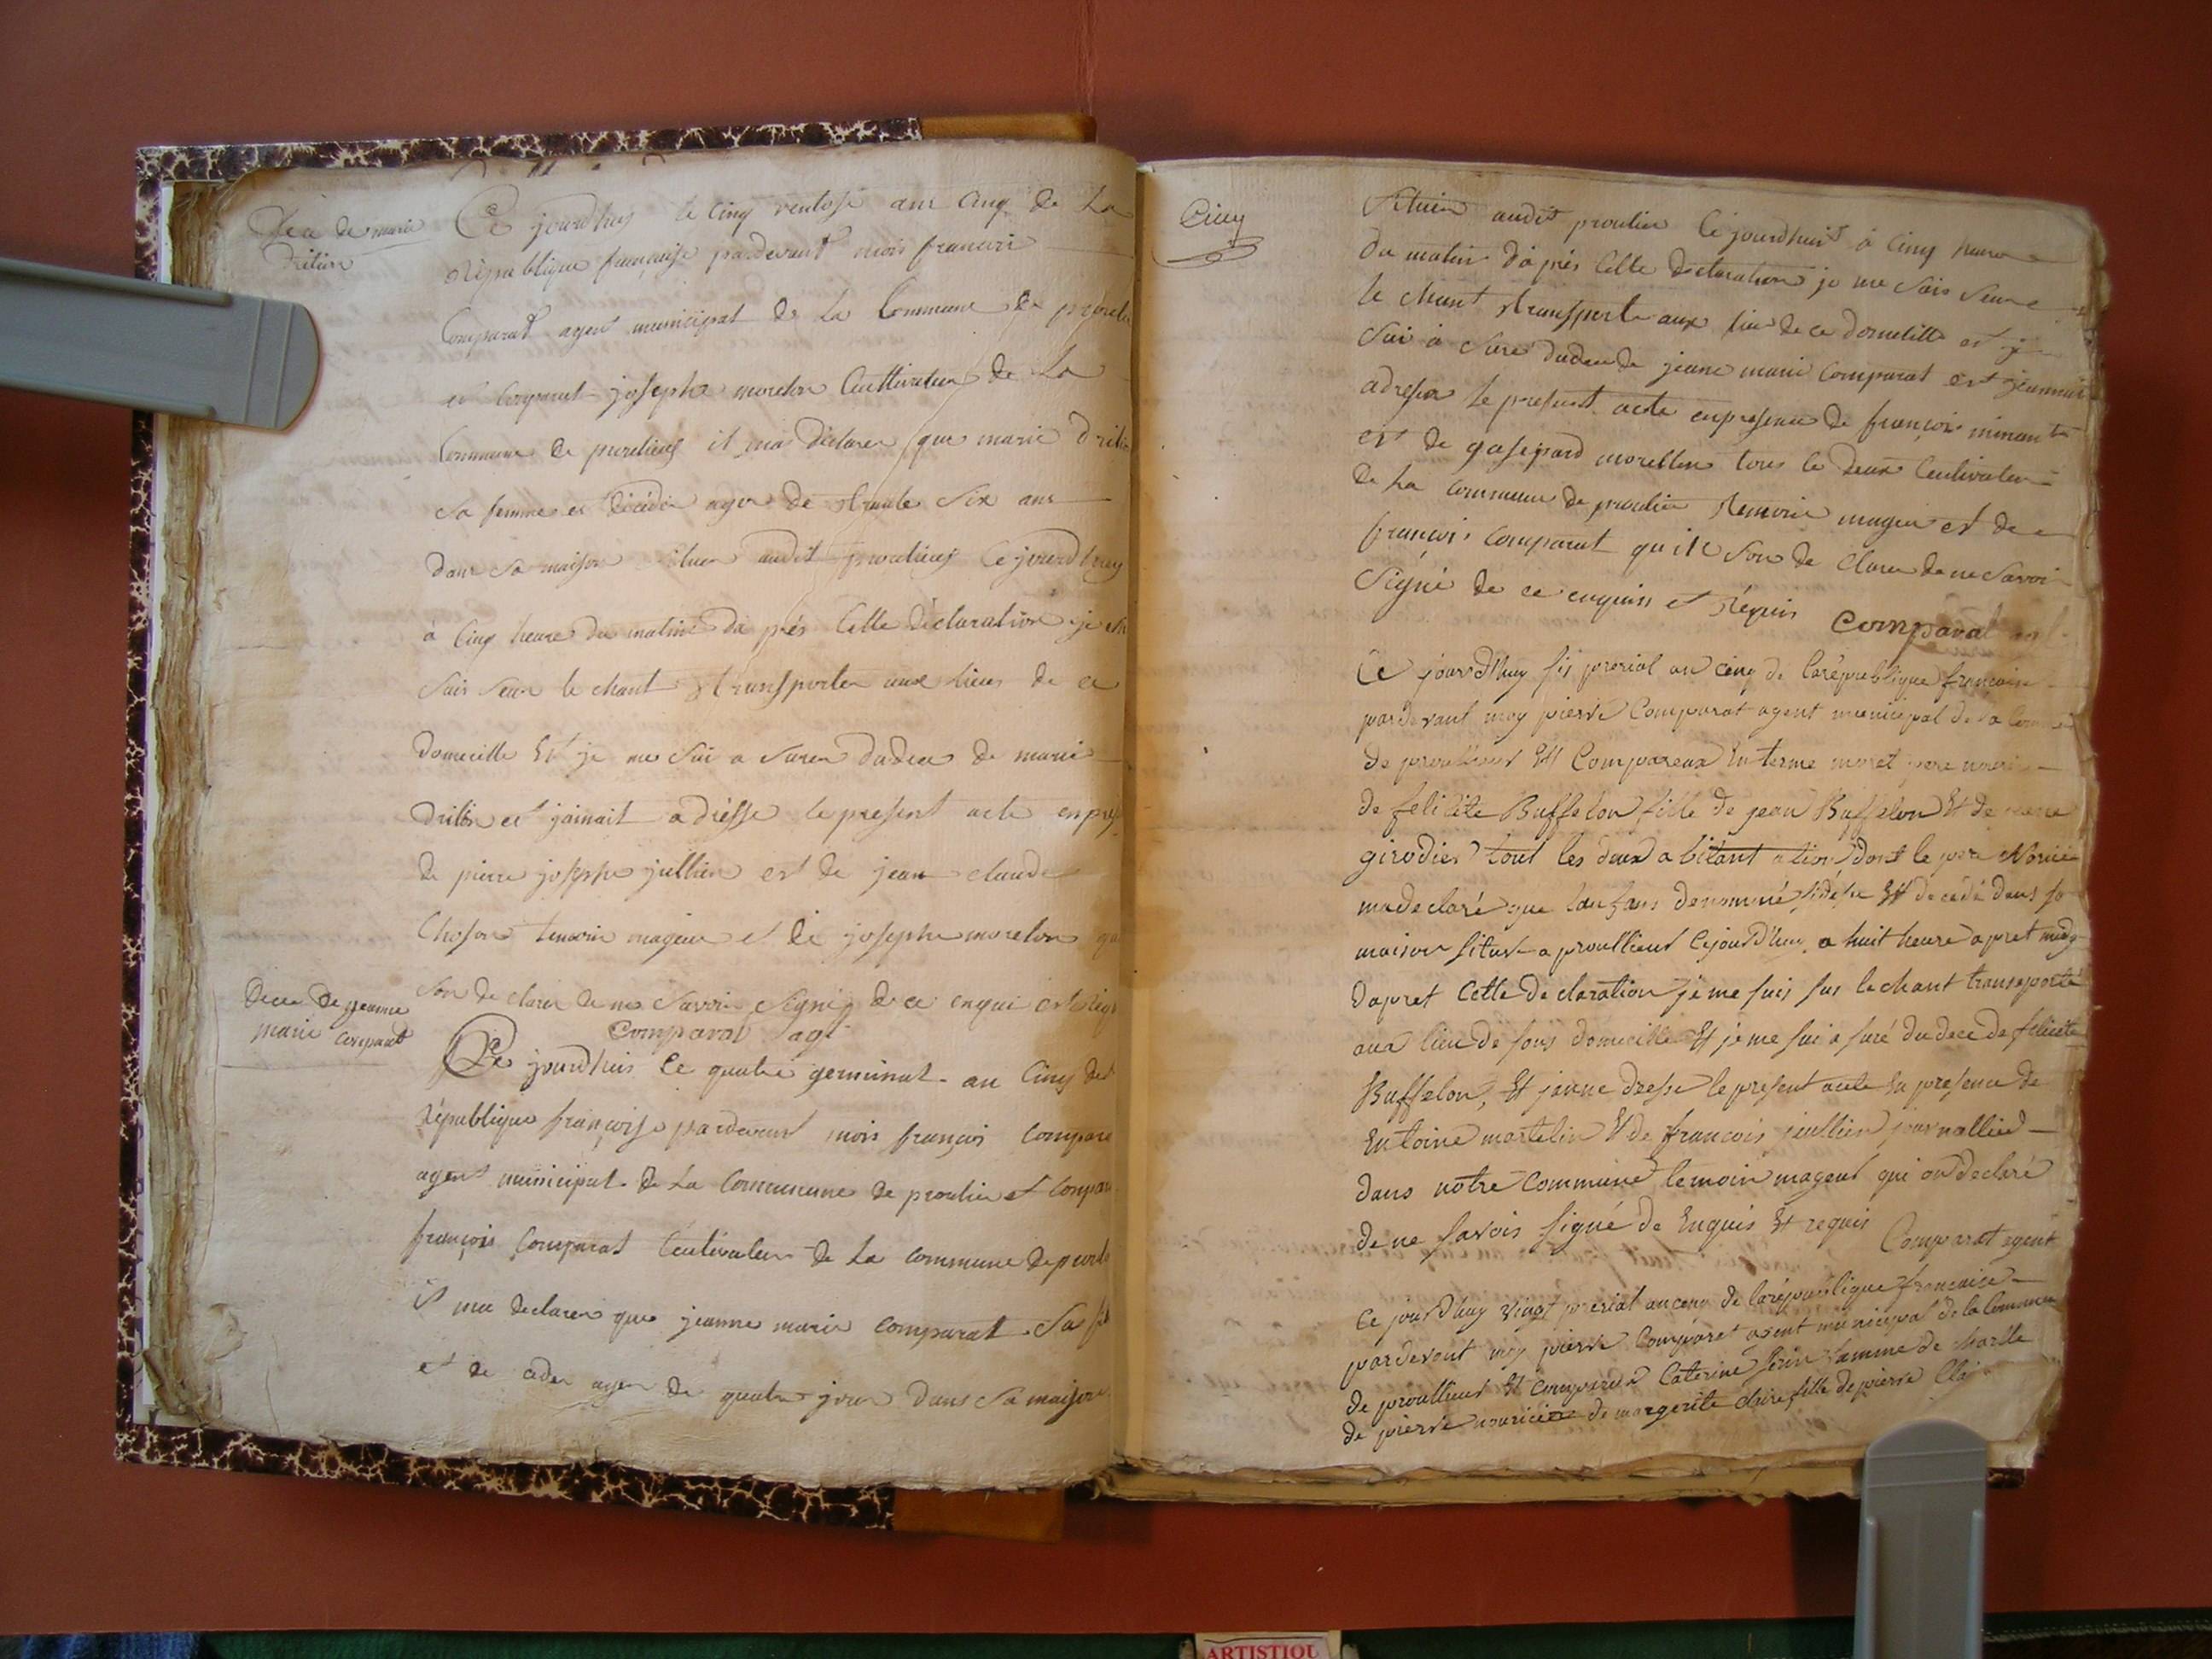 Deca de marie
Drilin
Ce jourdhuy le cinq ventose ans cinq de La
République française pardevant mois francois
Comparat agent municipal de La Commune de
et Comparut josepha morelon Cultivateur de La
Commune de il ma déclarer que marie
sa femme et décédé ager de trante Six ans
dans sa maison situer audit proulieuf Cejourdhuy
à Cinq heure du matin da prés Cette déclaration je
suis sure le chant transporter aux lieux de ce
domecille Et je me sui a surer dudeca de marie
Drilin et jainait adresse le present acte
de pierre josepha jullien et de jean claude
Choson temoin mageur et de josepha morelon
son de clarer de ne savoir Signé de ce enqui
Comparat agt
Deca de jeanne
marie comparat
Ce jourdhuis le quatre germinat an Cinq de
République françoise pardevant mois françois
agent municipal de La Commune de proulieu et
françois Comparat Cultivateur de La commune de
il ma declarer que jeanne marie comparat Sa
et de céder ager de quatre jour dans sa maison
Cinq
Situer audit proulieu Ce jourdhuit à Cinq heure
du matin da prés Cette déclaration je me suis sure
le chant transporte aux lieu de ce domecille et je
sui a surer dudeca de jeanne marie comparat et
adresser le present acte enpresence de françois
et de gasepard morellon tous le deux Cultivateur
de La commune de proulieu temoin mageur et de
françois Comparat qu il son de Clarer de ne savoir
Signé de ce enquis et Réquis Comparat
Ce jourd'huy sis prerial an cinq de larépublique françaisse
pardevant moy pierre Comparat agent municipal de la
de proullieux Et Compareux Enterme moret pere
de felicite Buffelon fille de jean Buffelon Et de
girodier tout les deux abitant a lion dont le pere
madeclaré que lanfans denommé Et decédé dans sa
maison situee a proullieux Cejourd'huy a huit heure apret midy
dapret Cette declaration je me suis sus lechant transeporté
aux lieu de sons domecille Et je me sui a suré du dece de felicite
Buffelon, Et janne dresse le present acte En presence de
Entoine martelin Et de francois jeullien journallied
dans notre Commune temoin mageur qui on declaré
de ne savois signé de Enquis Et requis Comparat agent
Ce jourd'huy vingt prerial an cenq de larépublique francaise
pardevant moy pierre Comparat agent municipal de la Commune
de proullieux Et Comparu Caterine famme de
de pierre nouriciere de margerite claire fille de pierre
ARTISTIQU